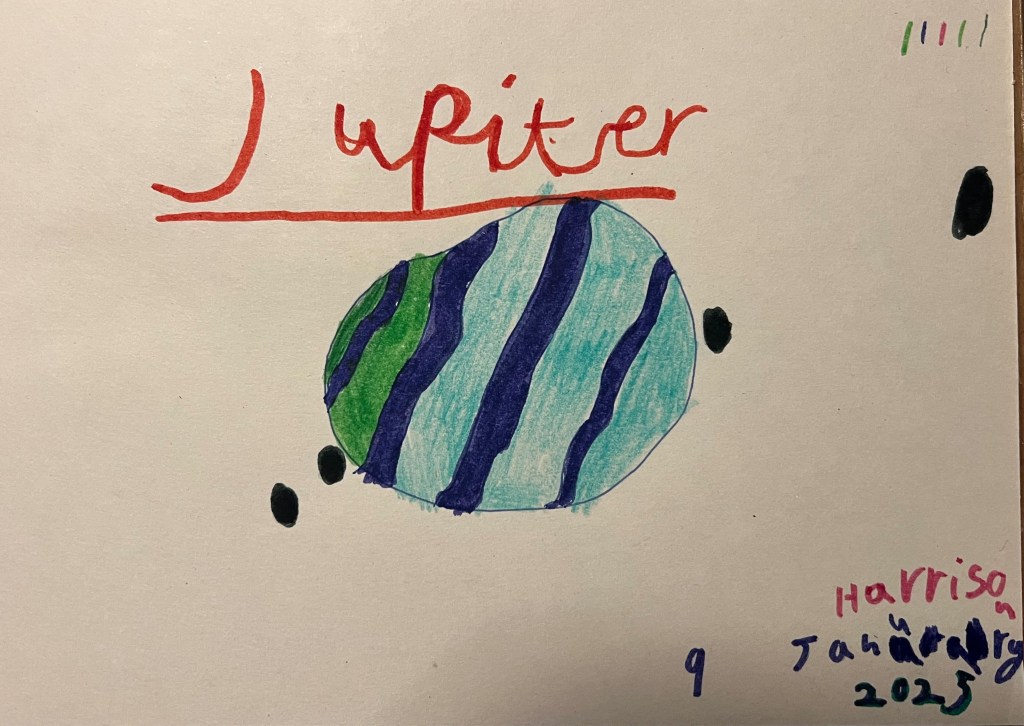 Jupiter
Harrison
9 January
2025